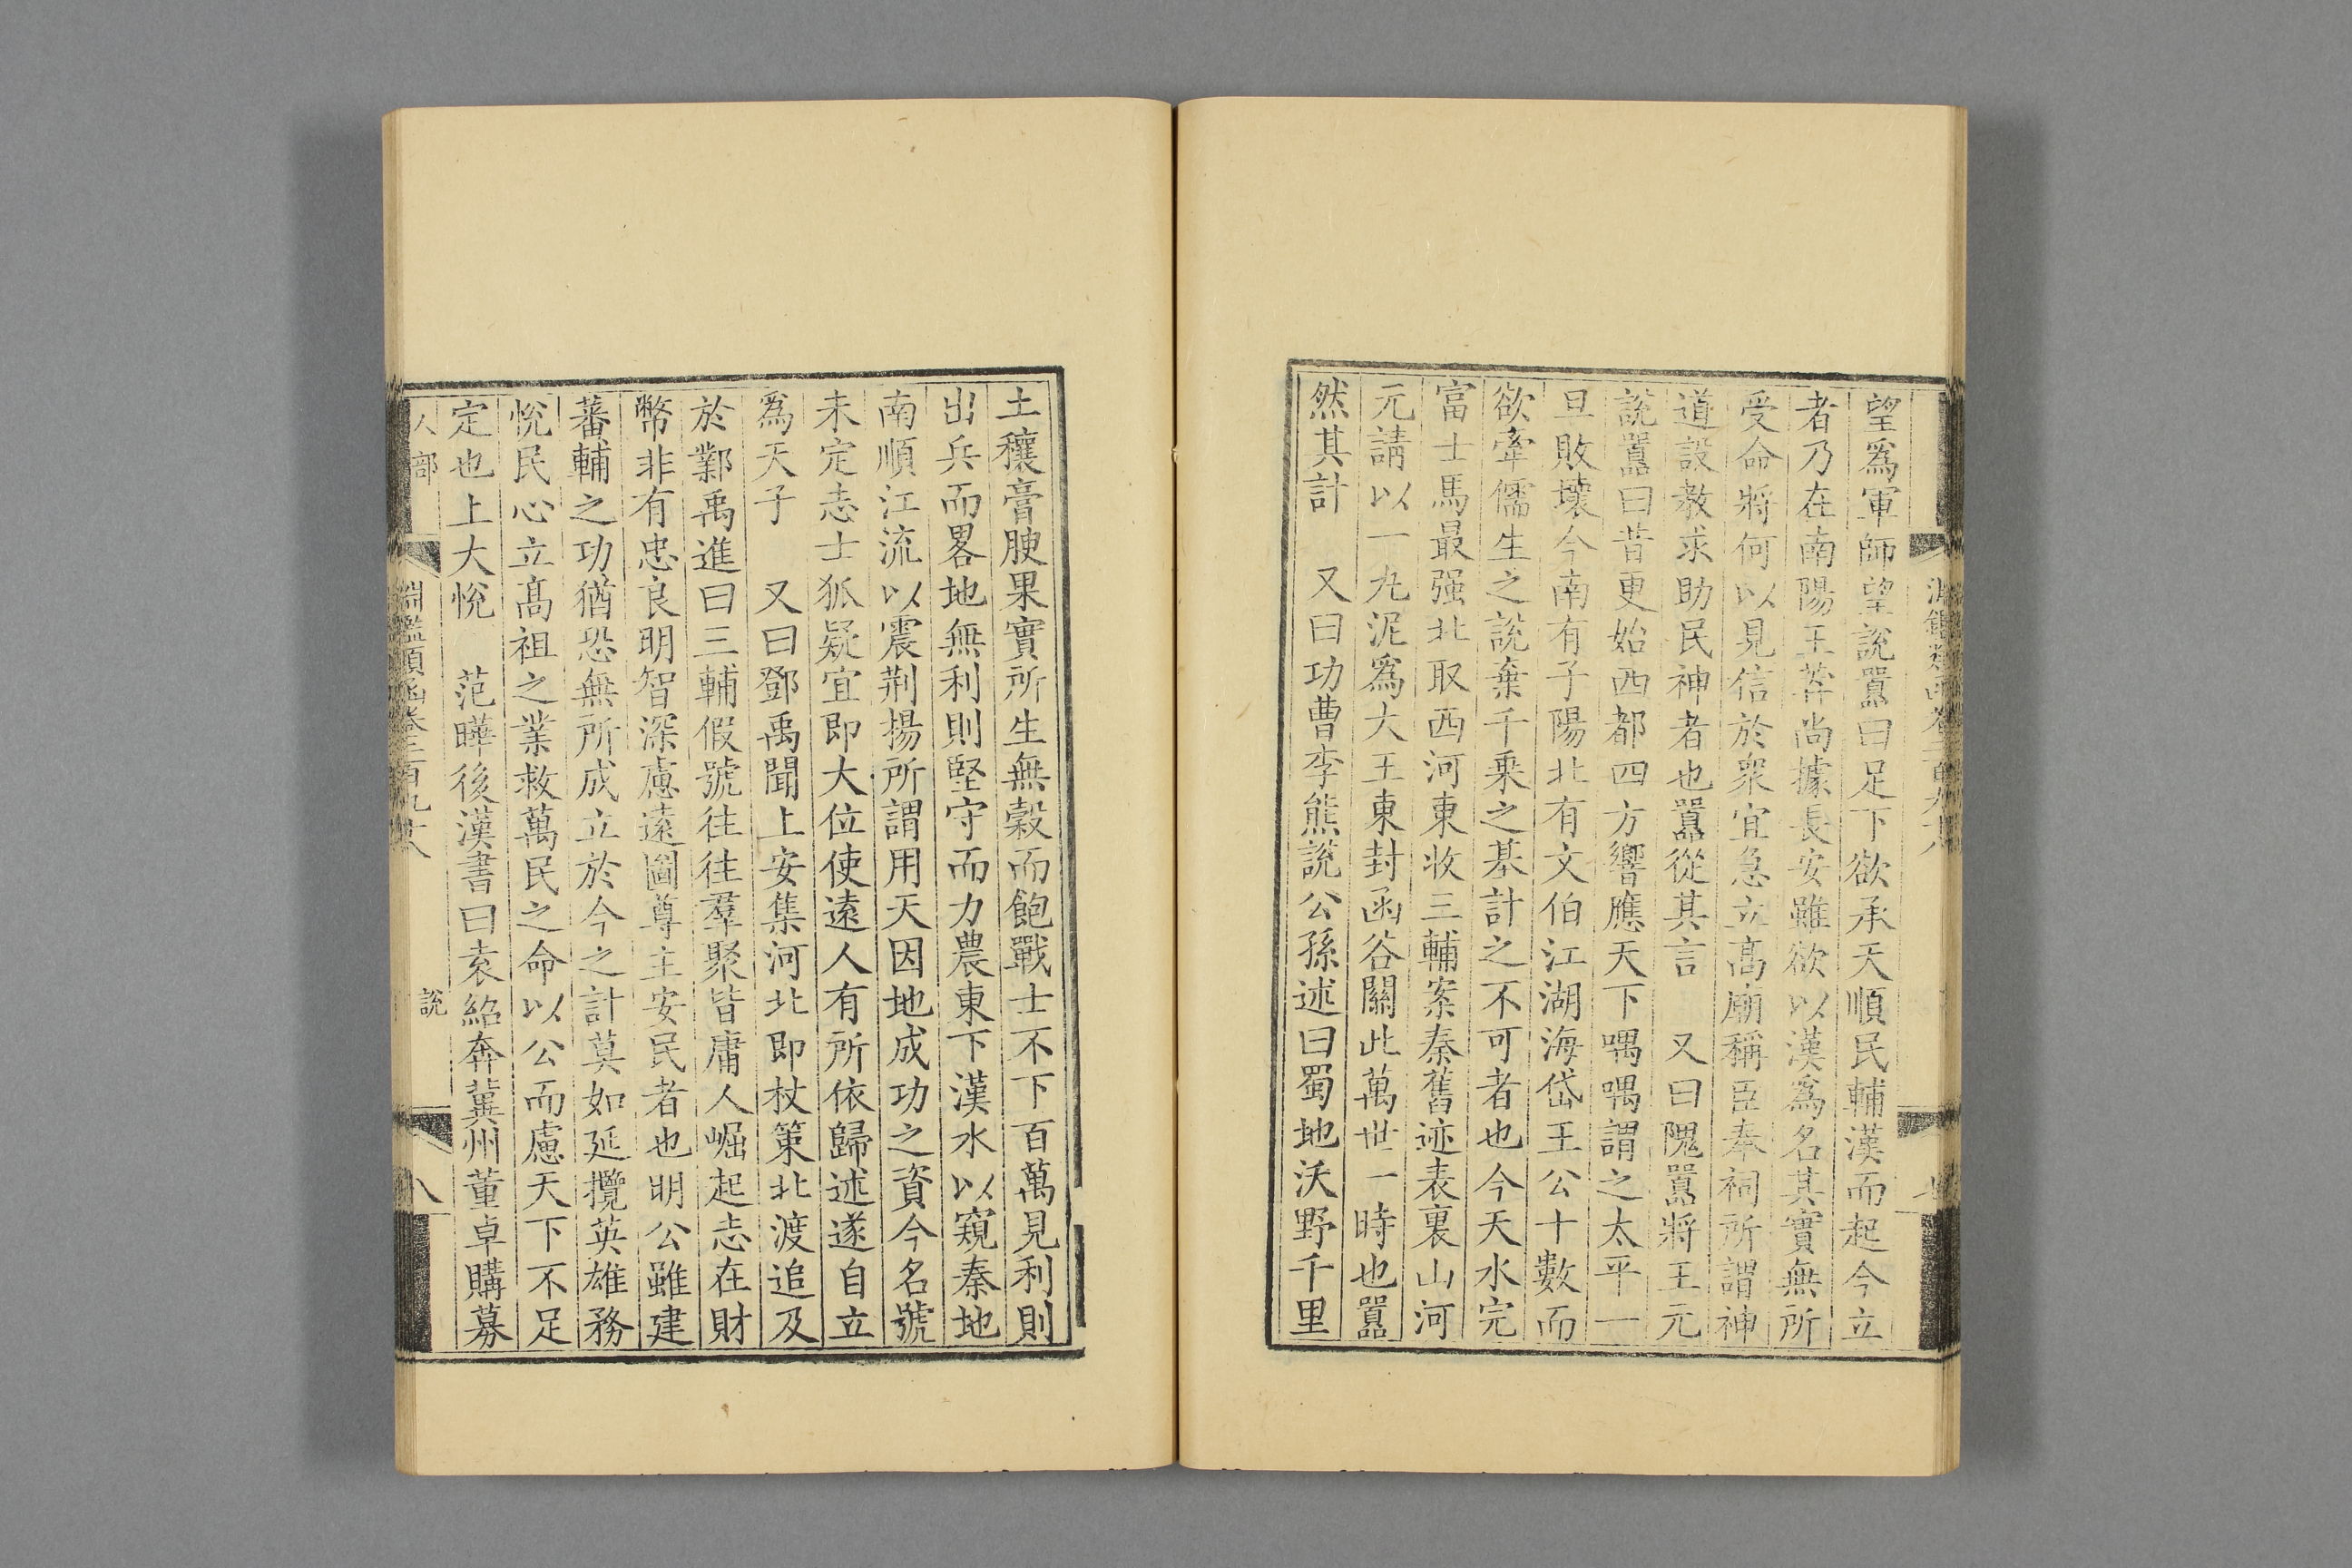 望爲軍師望說囂曰足下欲承天順民輔漢而起今立
者乃在南陽王莽尚據長安雖欲以漢爲名其實無所
受命將何以見信於衆宜急立高廟稱臣奉祠所謂神
道設教求助民神者也囂從其言　又曰隗囂將王元
說囂曰昔更始西都四方響應天下喁喁謂之太平一
旦敗壞今南有子陽北有文伯江湖海岱王公十數而
欲牽儒生之說棄千乗之基計之不可者也今天水完
富士馬最强北取西河東收三輔案秦舊迹表裏山河
元請以一丸泥爲大王東封函谷關此萬世一時也囂
然其計　又曰功曹李熊說公孫述曰蜀地沃野千里
土穰膏腴果實所生無穀而飽戰士不下百萬見利則
出兵而畧地無利則堅守而力農東下漢水以窺秦地
南順江流以震荆揚所謂用天因地成功之資今名號
未定志士狐疑宜即大位使遠人有所依歸述遂自立
爲天子　又曰鄧禹聞上安集河北即杖策北渡追及
於鄴禹進曰三輔假號往往羣聚皆庸人崛起志在財
幣非有忠良明智深慮遠圖尊主安民者也明公雖建
蕃輔之功猶恐無所成立於今之計莫如延攬英雄務
悅民心立高祖之業救萬民之命以公而慮天下不足
定也上大悅　范曄後漢書曰袁紹奔冀州董卓購募
人部　淵鑑類函卷二百九十八　說　八